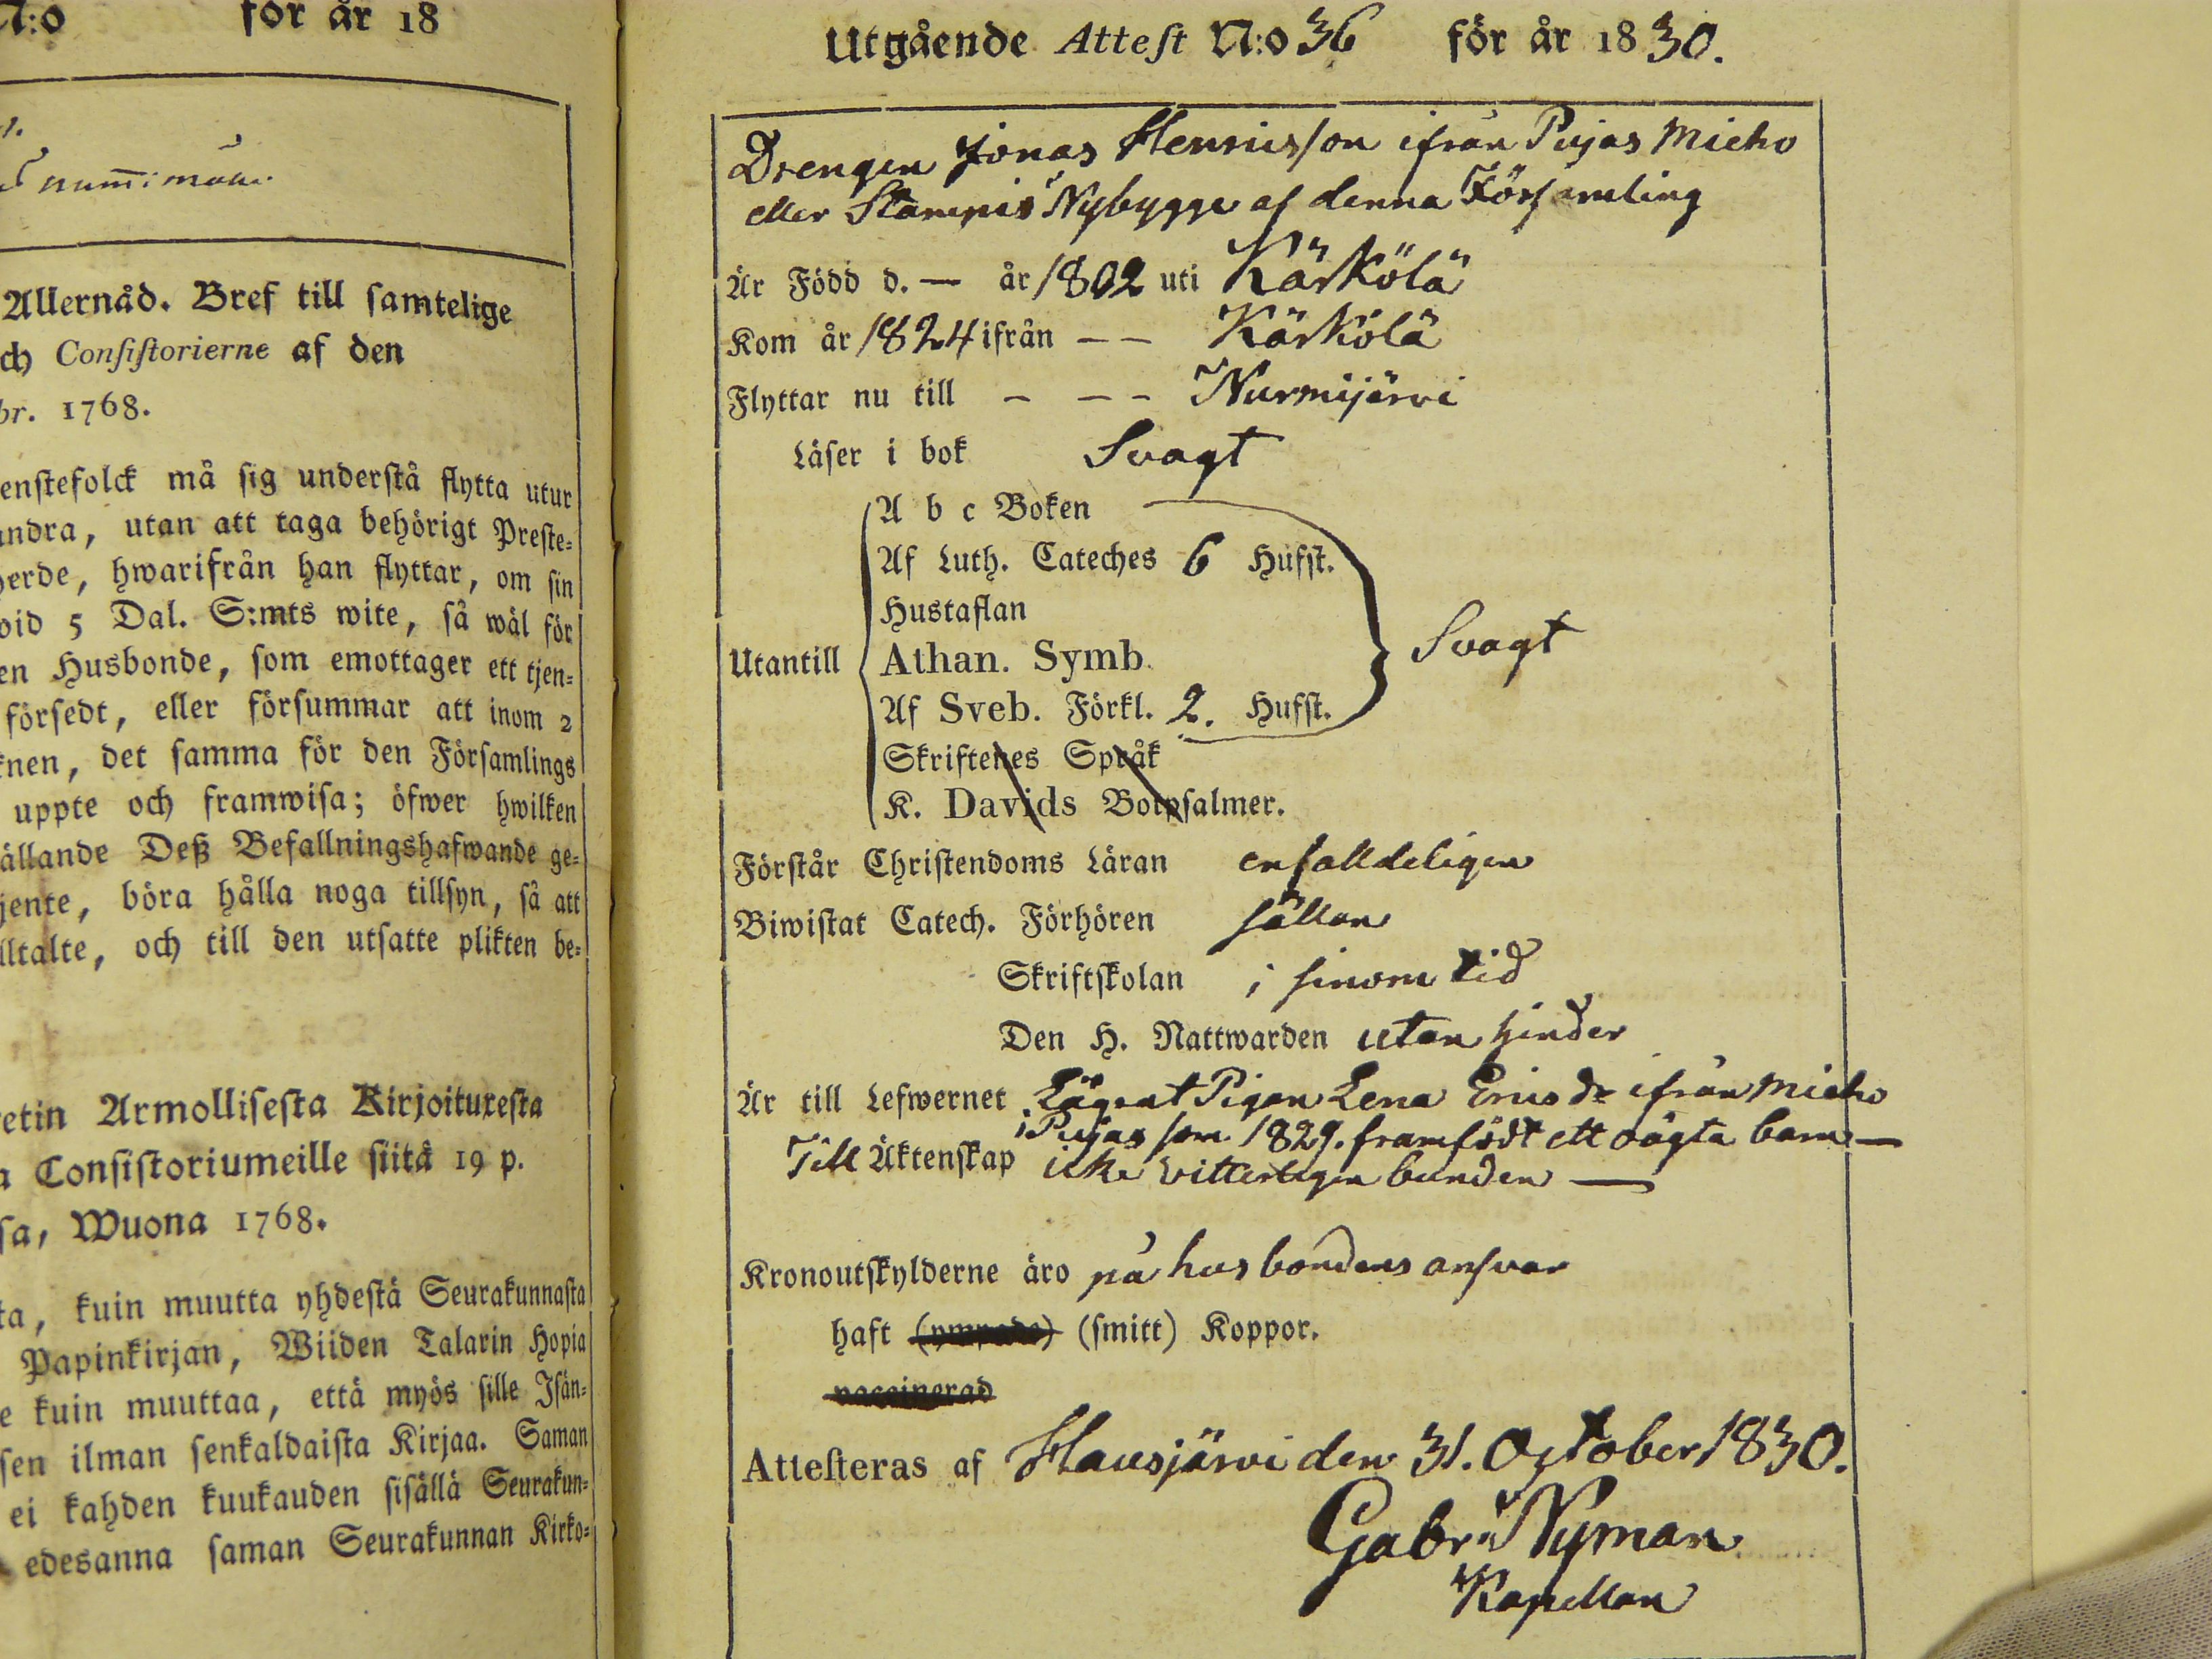 N:o för år 18
1.
numm: man.
Allernåd. Bref till samtelige
ch Consistorierne af den
br. 1768.
enstefolck må sig understå flytta utur
andra, utan att taga behörigt Preste-
herde, hwarifrån han flyttar, om sin
wid 5 Dal. S:mts wite, så wäl för
en Husbonde, som emottager ett tjen-
försedt, eller försummar att inom 2
knen, det samma för den Församlings
uppte och framwisa; öfwer hwilken
ällande Deß Befallningshafwande ge-
jente, böra hålla noga tillsyn, så att
lltalte, och till den utsatte plikten be-
etin Armollisesta Kirjoituxesta
a Consistoriumeille siitä 19 p.
sa, Wuona 1768.
ta, kuin muutta yhdestä Seurakunnasta
Papinkirjan, Wiiden Talarin Hopia
e kuin muuttaa, että myös sille Isän-
sen ilman senkaldaista Kirjaa. Saman
ei kahden kuukauden sisällä Seurakun-
edesanna saman Seurakunnan Kirko-
Utgående Attest N:o 36 för år 1830.
Drengen Jonas Henricsson ifrån Pujas Micho
eller Stampis Nybygge af denna Församling
Är Född d. — år 1802 uti Kärkölä
Kom år 1824 ifrån – – Kärkölä
Flyttar nu till – – – Nurmijärvi
Läser i bok Svagt
A b c Boken
Af Luth. Cateches 6 Hufst.
Hustaflan
Utantill Athan. Symb. Svagt
Af Sveb. Förkl. 2. Hufst.
Skriftenes Språk
K. Davids Botpsalmer.
Förstår Christendoms Läran enfalldeligen
Biwistat Catech. Förhören sällan
Skriftskolan i sinom tid
Den H. Nattwarden utan hinder
Är till Lefwernet Lägrat Pigan Lena Ericsdr ifrån Micho
Pujas som 1829. framfödt ett oägta barn —
Till Äktenskap icke vitterligen bunden —
Kronoutskylderne äro på husbondens ansvar
haft (ympade) (smitt) Koppor.
vaccinerad
Attesteras af Hausjärvi den 31. October 1830.
Gabr: Nyman
Kapellan